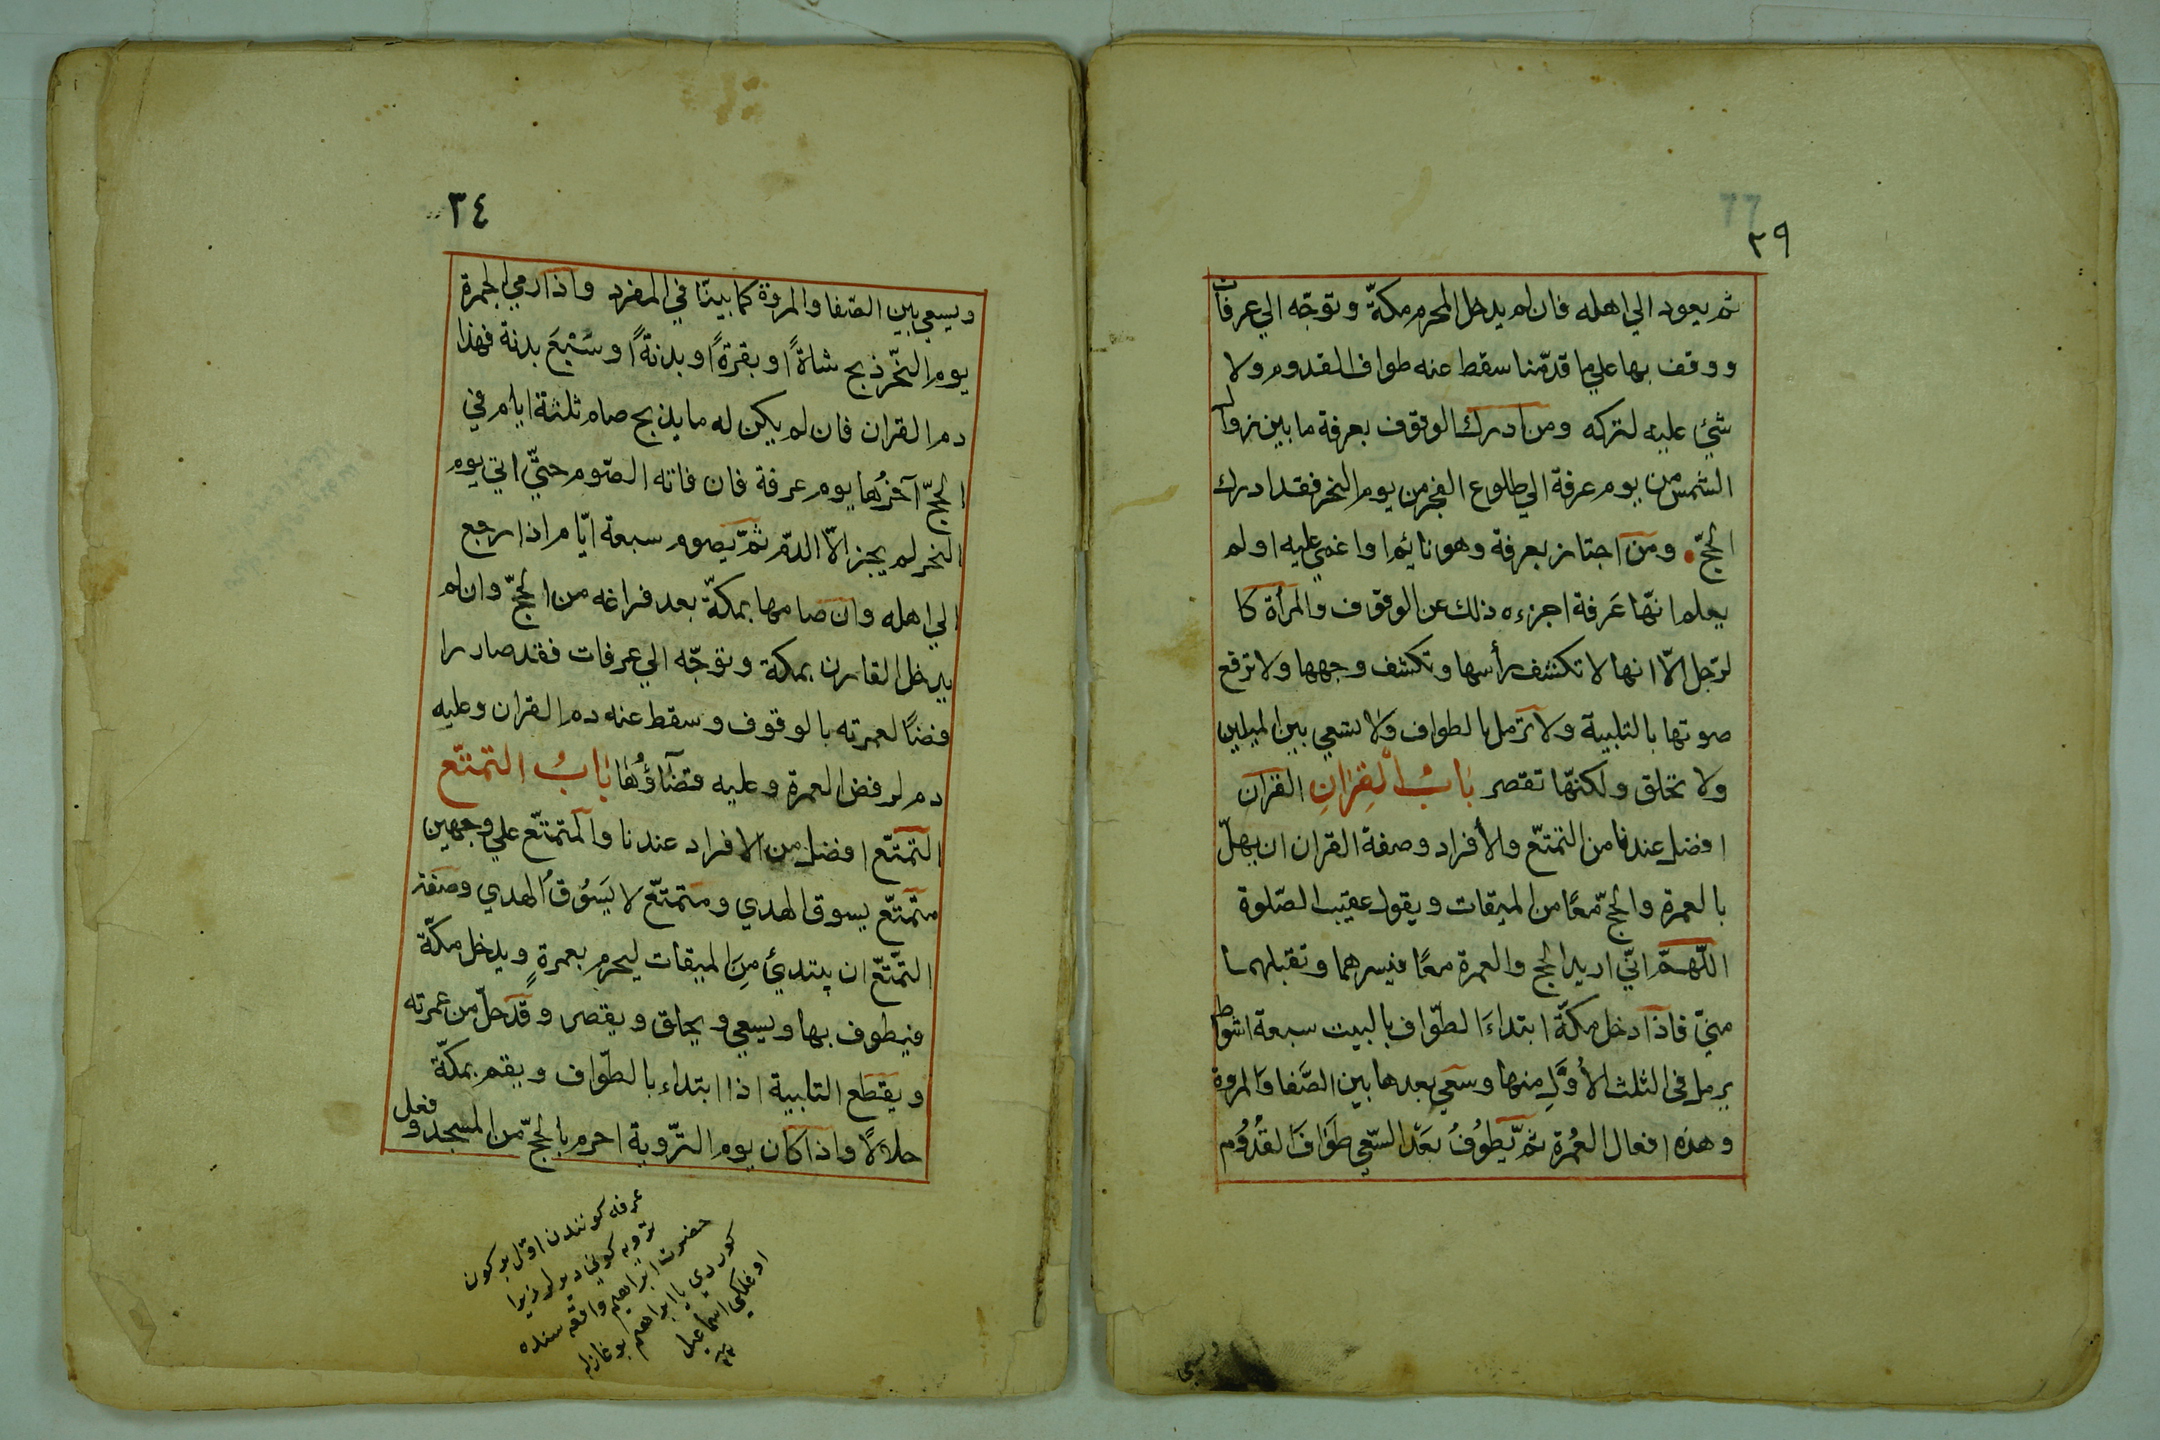 ٣٩
ثم يعود الي اهله فان لم يدخل المحرم مكّة وتوجّه الي عرفات
ووقف بها علي ما قدّمنا سقط عنه طواف القدوم ولا
شئ عليه لتركه ومن ادرك الوقوف بعرفة ما بين زوال
الشمس من يوم عرفة الي طلوع الفجر من يوم النحر فقد ادرك
الحجّ ومن اجتاز بعرفة وهو نايم او اغمي عليه او لم
يعلم انّها عَرفة اجزءه ذلك عن الوقوف والمرأة كا
لرّجل الّا انها لا تكشف رأسها وتكشف وجهها ولا ترفع
صوتها بالتلبية ولا ترمل بالطواف ولا تسعي بين الميلين
ولا تحلق ولكنّها تقصر بَابُ الْقِرَانِ القران
افضل عندنا من التمتّع والأفراد وصفة القران ان يهلّ
بالعمرة والحجّ معًا من الميقات ويقول عقيب الصّلوة
اللّهمّ انّي اريد الحج والعمرة معًا فيسرهما وتقبلهما
منيّ فاذا دخل مكّة ابتداءَ الطّواف بالبيت سبعة اشواط
يرمل في الثلث الأوَّلِ منها وسَعي بعدها بين الصَّفا وَالمروة
وهذه افعال العُمرة ثمّ يَطوُفُ بَعْدَ السّعي طَوَافَ القُدُوُم
ويسعي
٣٤
ويسعي بين الصّفا والمروة كما بيّنا في المفرد واذا رمي الجمرة
يوم النّحر ذبح شاةً او بقرةً او بدنةً او سُبْعَ بدنة فهذا
دم القران فان لم يكن له ما يذبح صام ثلثة ايام في
الحجّ آخرُها يوم عرفة فان فاته الصّوم حتيّ اتي يوم
النحر لم يجز الّا الدّم ثمّ يَصوم سبعة ايّام اذا رجع
الي اهله وان صامها بمكّة بعد فراغه من الحجّ وان لم
يدخل القارن بمكة وتوجّه الي عرفات فقد صار را
فضًا لعمرته بالوقوف وسقط عنه دم القران وعليه
دم لرفض العمرة وعليه قضآؤُهَا بَابُ التمتّع
التمتّع افضل من الافراد عندنا والمتمتّع علي وجهين
متمّتّع يسوق الهدي ومتمتّع لا يَسُوقُ الهدي وصفة
التمّتّع ان يبتدئ مِنَ الميقات ليحرم بعمرةٍ ويدخل مكّة
فيطوف بها ويسعي ويحلق ويقصر وقد حلّ من عمرته
ويقطع التلبية اذا ابتداء بالطّواف ويقم بمكّة
حلالًا واذا كان يوم التّروية احرم بالحجّ من المسجد وفعل
عرفه كونندن اوّل بر كون
ترويه كوني ديرلر زيرا
حضرت ابراهيم واقعه سنده
كوردي يا ابراهيم بوغازله
اوغلكي اسماعيل